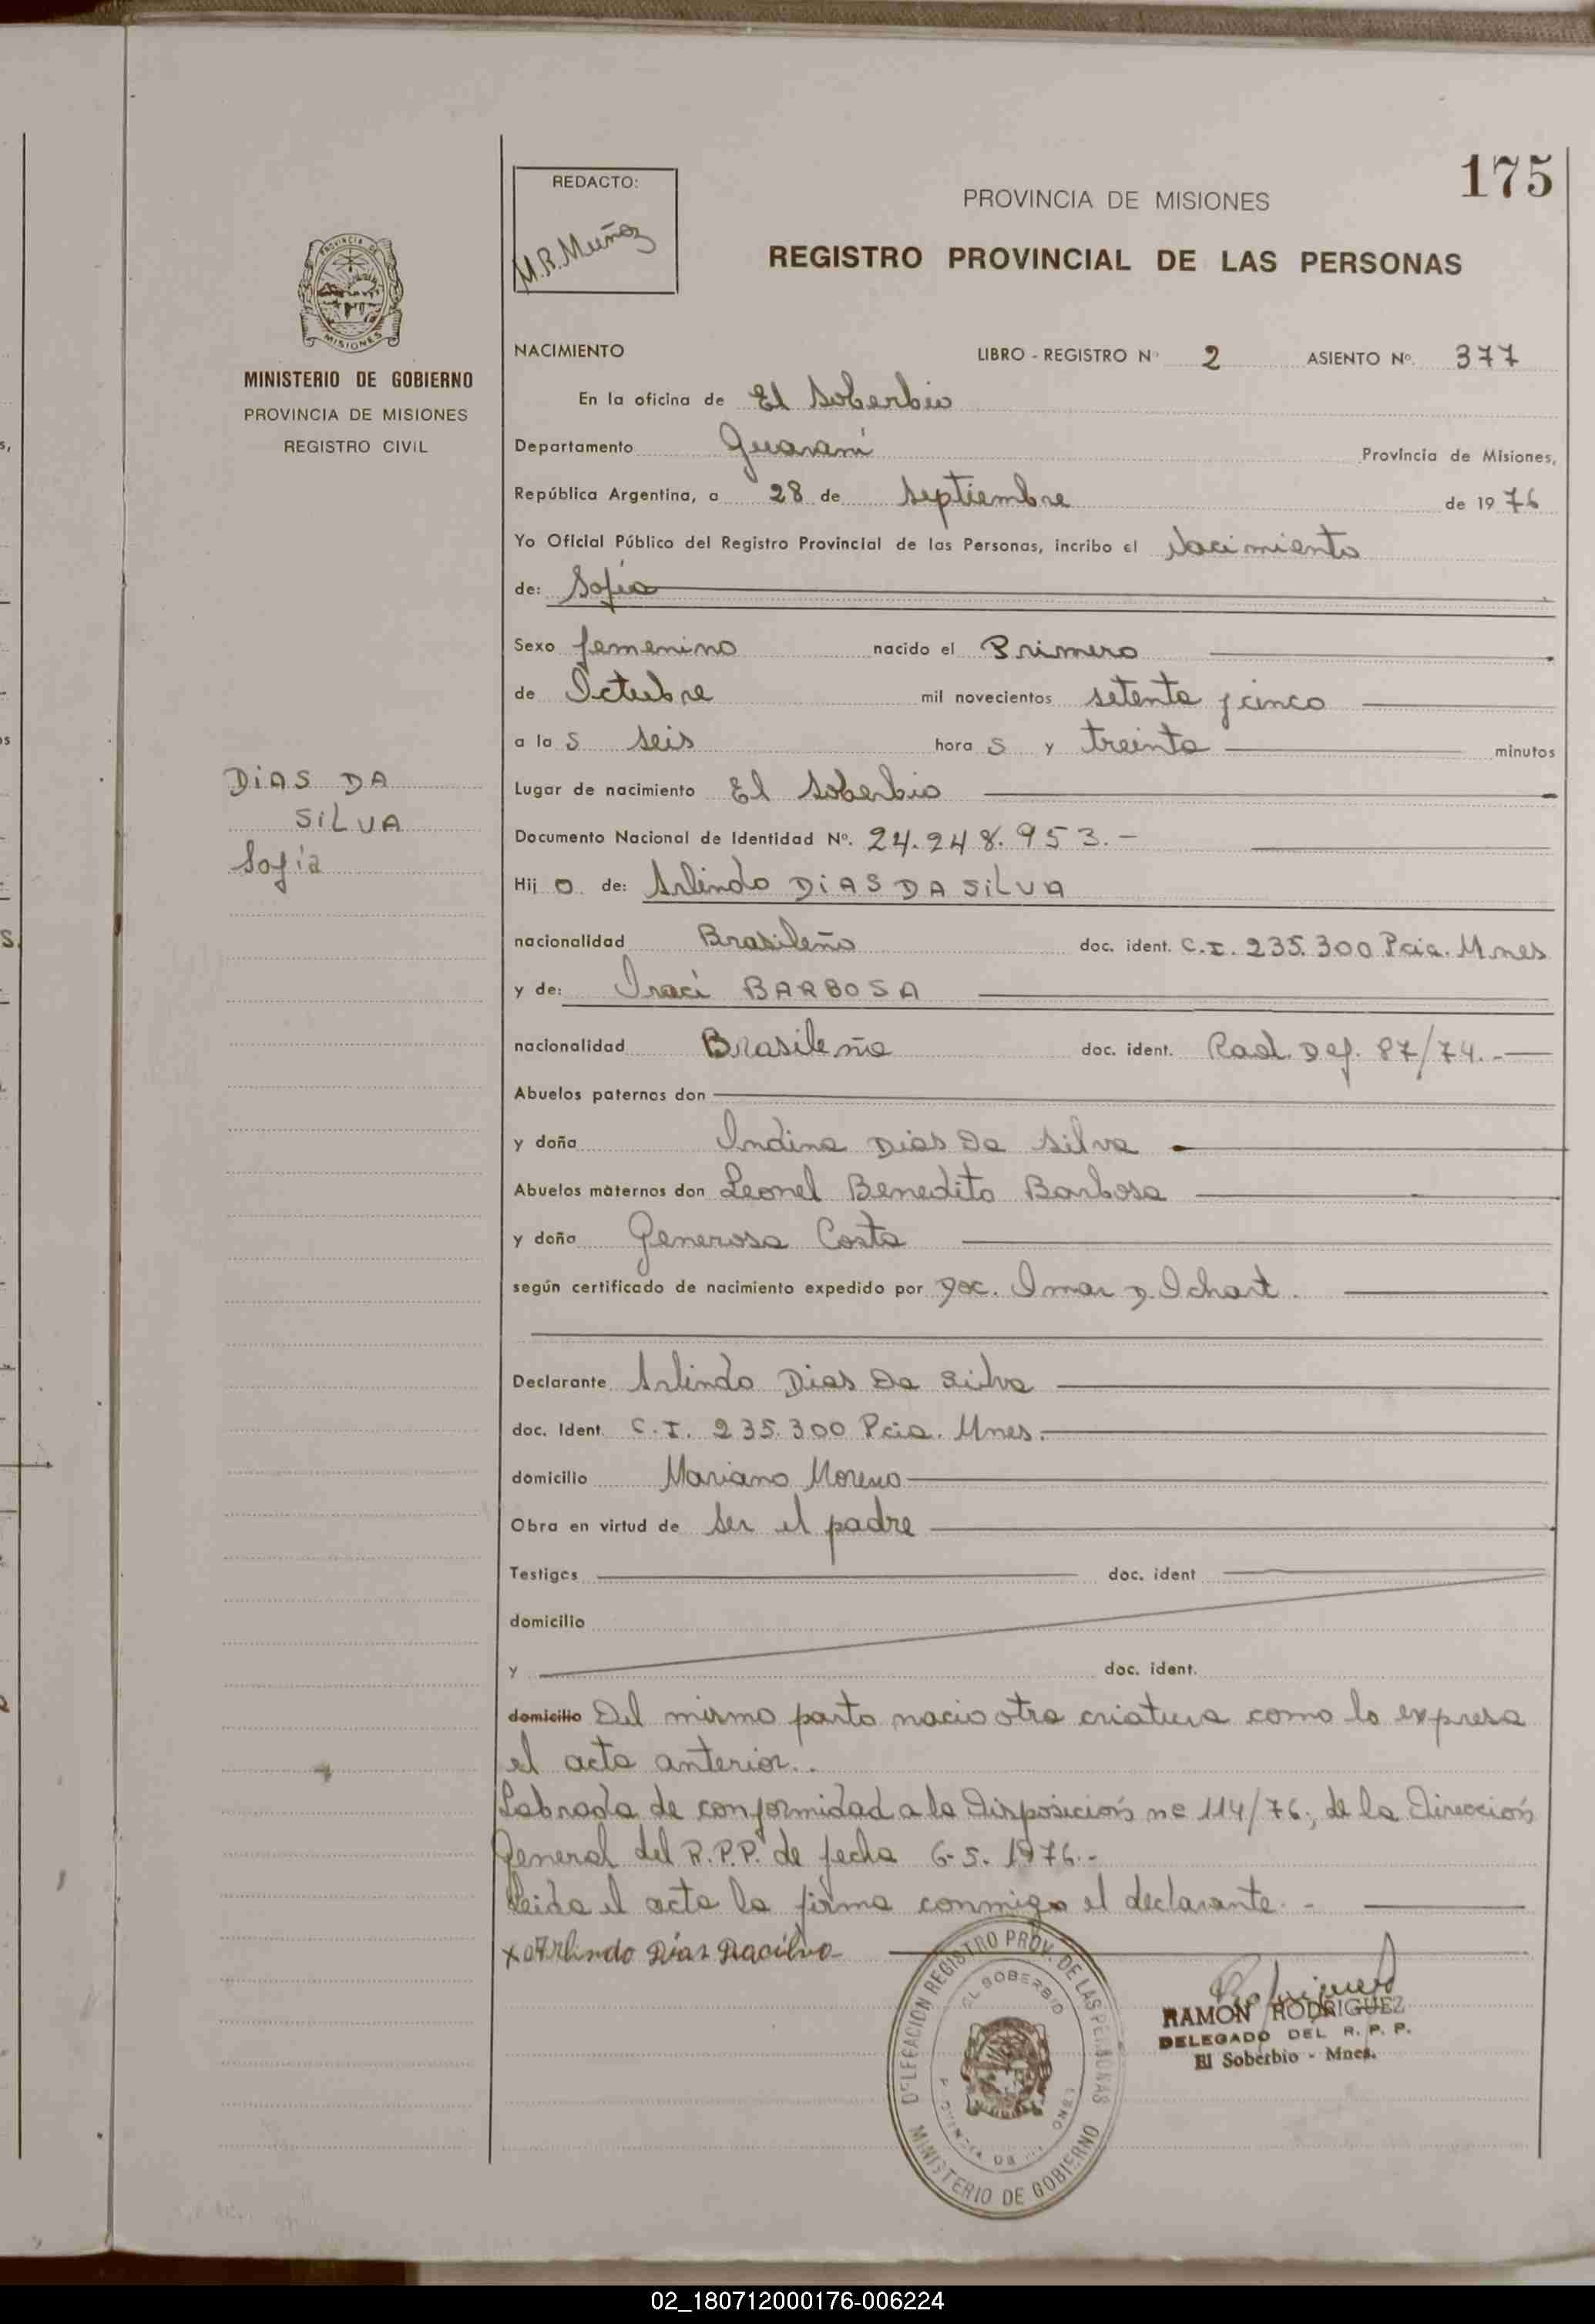 175
REDACTO:
M.R. Muñoz
PROVINCIA DE MISIONES
REGISTRO PROVINCIAL DE LAS PERSONAS
PROVINCIA DE
MISIONES
MINISTERIO DE GOBIERNO
PROVINCIA DE MISIONES
REGISTRO CIVIL
DIAS DA
SILVA
Sofía
NACIMIENTO LIBRO - REGISTRO Nº 2 ASIENTO Nº. 377
En la oficina de El Soberbio
Departamento Guaraní Provincia de Misiones,
República Argentina, a 28 de Septiembre de 1976
Yo Oficial Público del Registro Provincial de las Personas, incribo el Nacimiento
de: Sofía
Sexo femenino nacido el Primero
de Octubre mil novecientos setenta y cinco
a la s seis hora s y treinta minutos
Lugar de nacimiento El Soberbio
Documento Nacional de Identidad Nº. 24.248.953.-
Hij o de: Arlindo DIAS DA SILVA
nacionalidad Brasileño doc. ident. C.I. 235.300 Pcia. Mnes
y de: Iraci BARBOSA
nacionalidad Brasileña doc. ident. Rad. Def. 87/74.-
Abuelos paternos don
y doña Indina Dias Da Silva
Abuelos maternos don Leonel Benedito Barbosa
y doña Generosa Costa
según certificado de nacimiento expedido por Doc. Omar D. Ichart.
Declarante Arlindo Dias Da Silva
doc. Ident. C.I. 235.300 Pcia. Mnes.
domicilio Mariano Moreno
Obra en virtud de Ser el padre
Testigos doc. ident
domicilio
y doc. ident.
domicilio Del mismo parto nacio otra criatura como lo expresa
el acta anterior..
Labrada de conformidad a la Disposición nº 114/76; de la Dirección
General del R.P.P. de fecha 6-5-1976.-
Leida el acta la firma conmigo el declarante.-
x Arlindo Días Dasilva
DELEGACION REGISTRO PROV. DE LAS PERSONAS
EL SOBERBIO
MINISTERIO DE GOBIERNO
RAMON RODRIGUEZ
DELEGADO DEL R. P. P.
El Soberbio - Mnes.
02_180712000176-006224